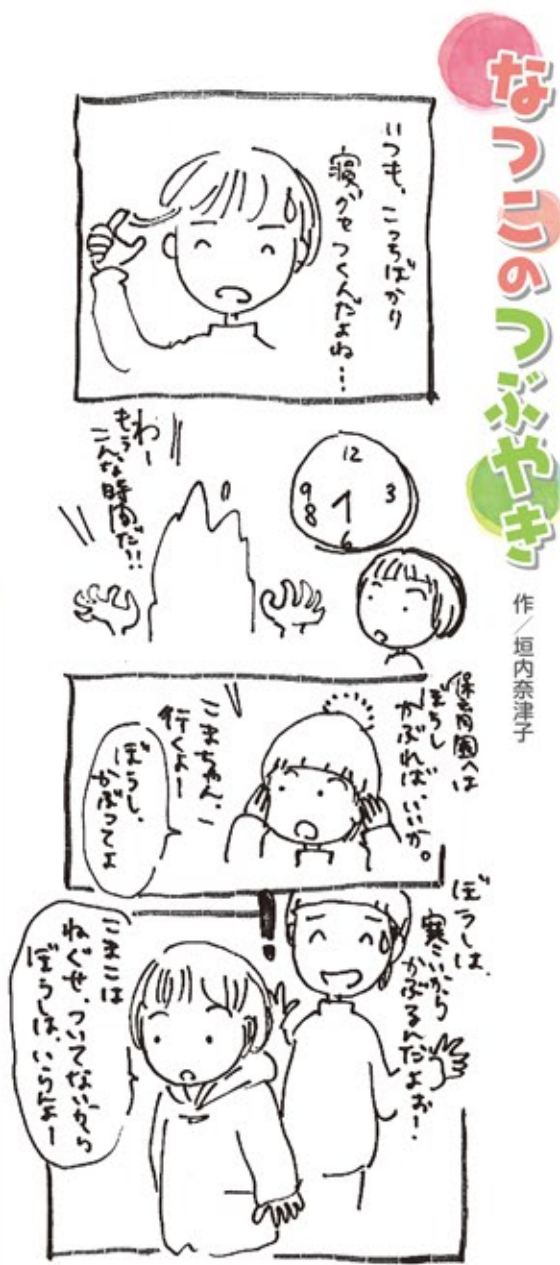 なつこのつぶやき
作/垣内奈津子
いつも、こっちばかり
寝ぐせつくんだよね…
12
3
6
8
9
わー
もう、
こんな時間だ!!
保育園へは
ぼうし
かぶれば、いいか。
こまちゃん、
行くよー
ぼうし、
かぶってよ
ぼうしは、
寒いから
かぶるんだよぉー!
!
こまこは
ねぐせ、ついてないから
ぼうしは、いらんよー